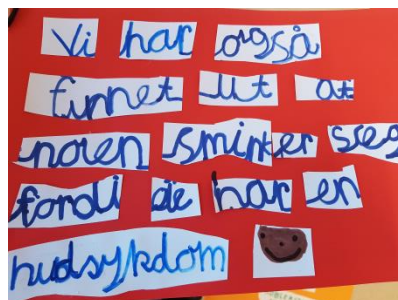 Vi har også
funnet ut at
noen sminker seg
fordi de har en
hudsykdom